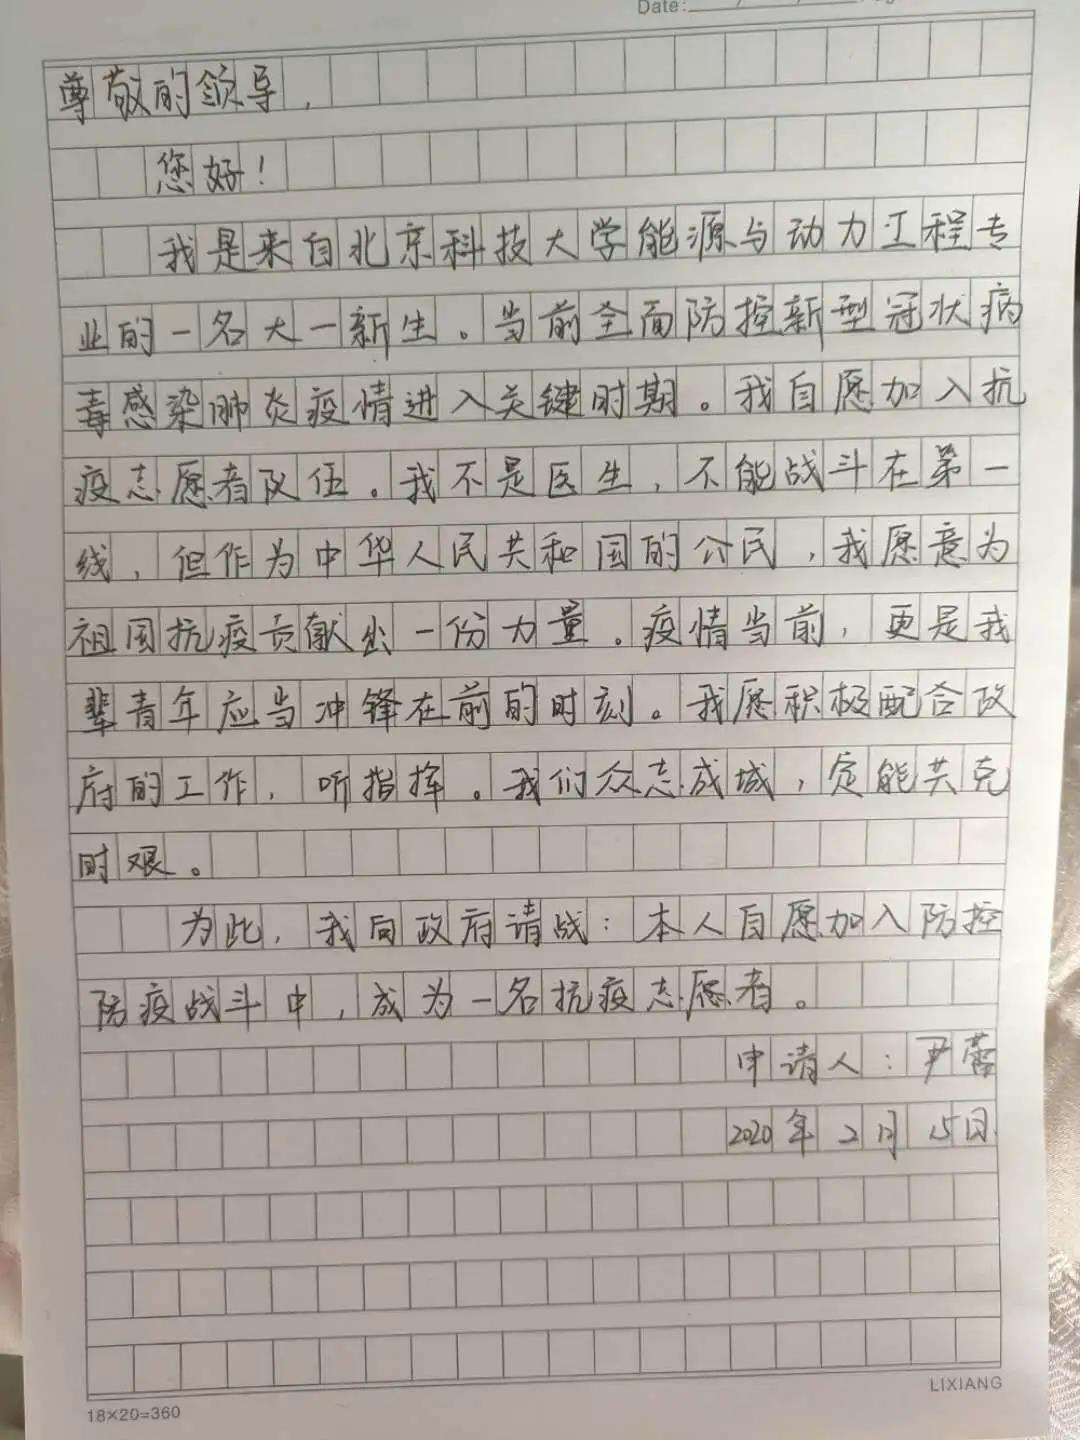 Date:
尊敬的领导,
您好!
我是来自北京科技大学能源与动力工程专
业的一名大一新生。当前全面防控新型冠状病
毒感染肺炎疫情进入关键时期。我自愿加入抗
疫志愿者队伍。我不是医生,不能战斗在第一
线,但作为中华人民共和国的公民,我愿意为
祖国抗疫贡献出一份力量。疫情当前,更是我
辈青年应当冲锋在前的时刻。我愿积极配合政
府的工作,听指挥。我们众志成城,定能共克
时艰。
为此,我向政府请战:本人自愿加入防控
防疫战斗中,成为一名抗疫志愿者。
申请人:尹
2020年2月15日
LIXIANG
18×20=360